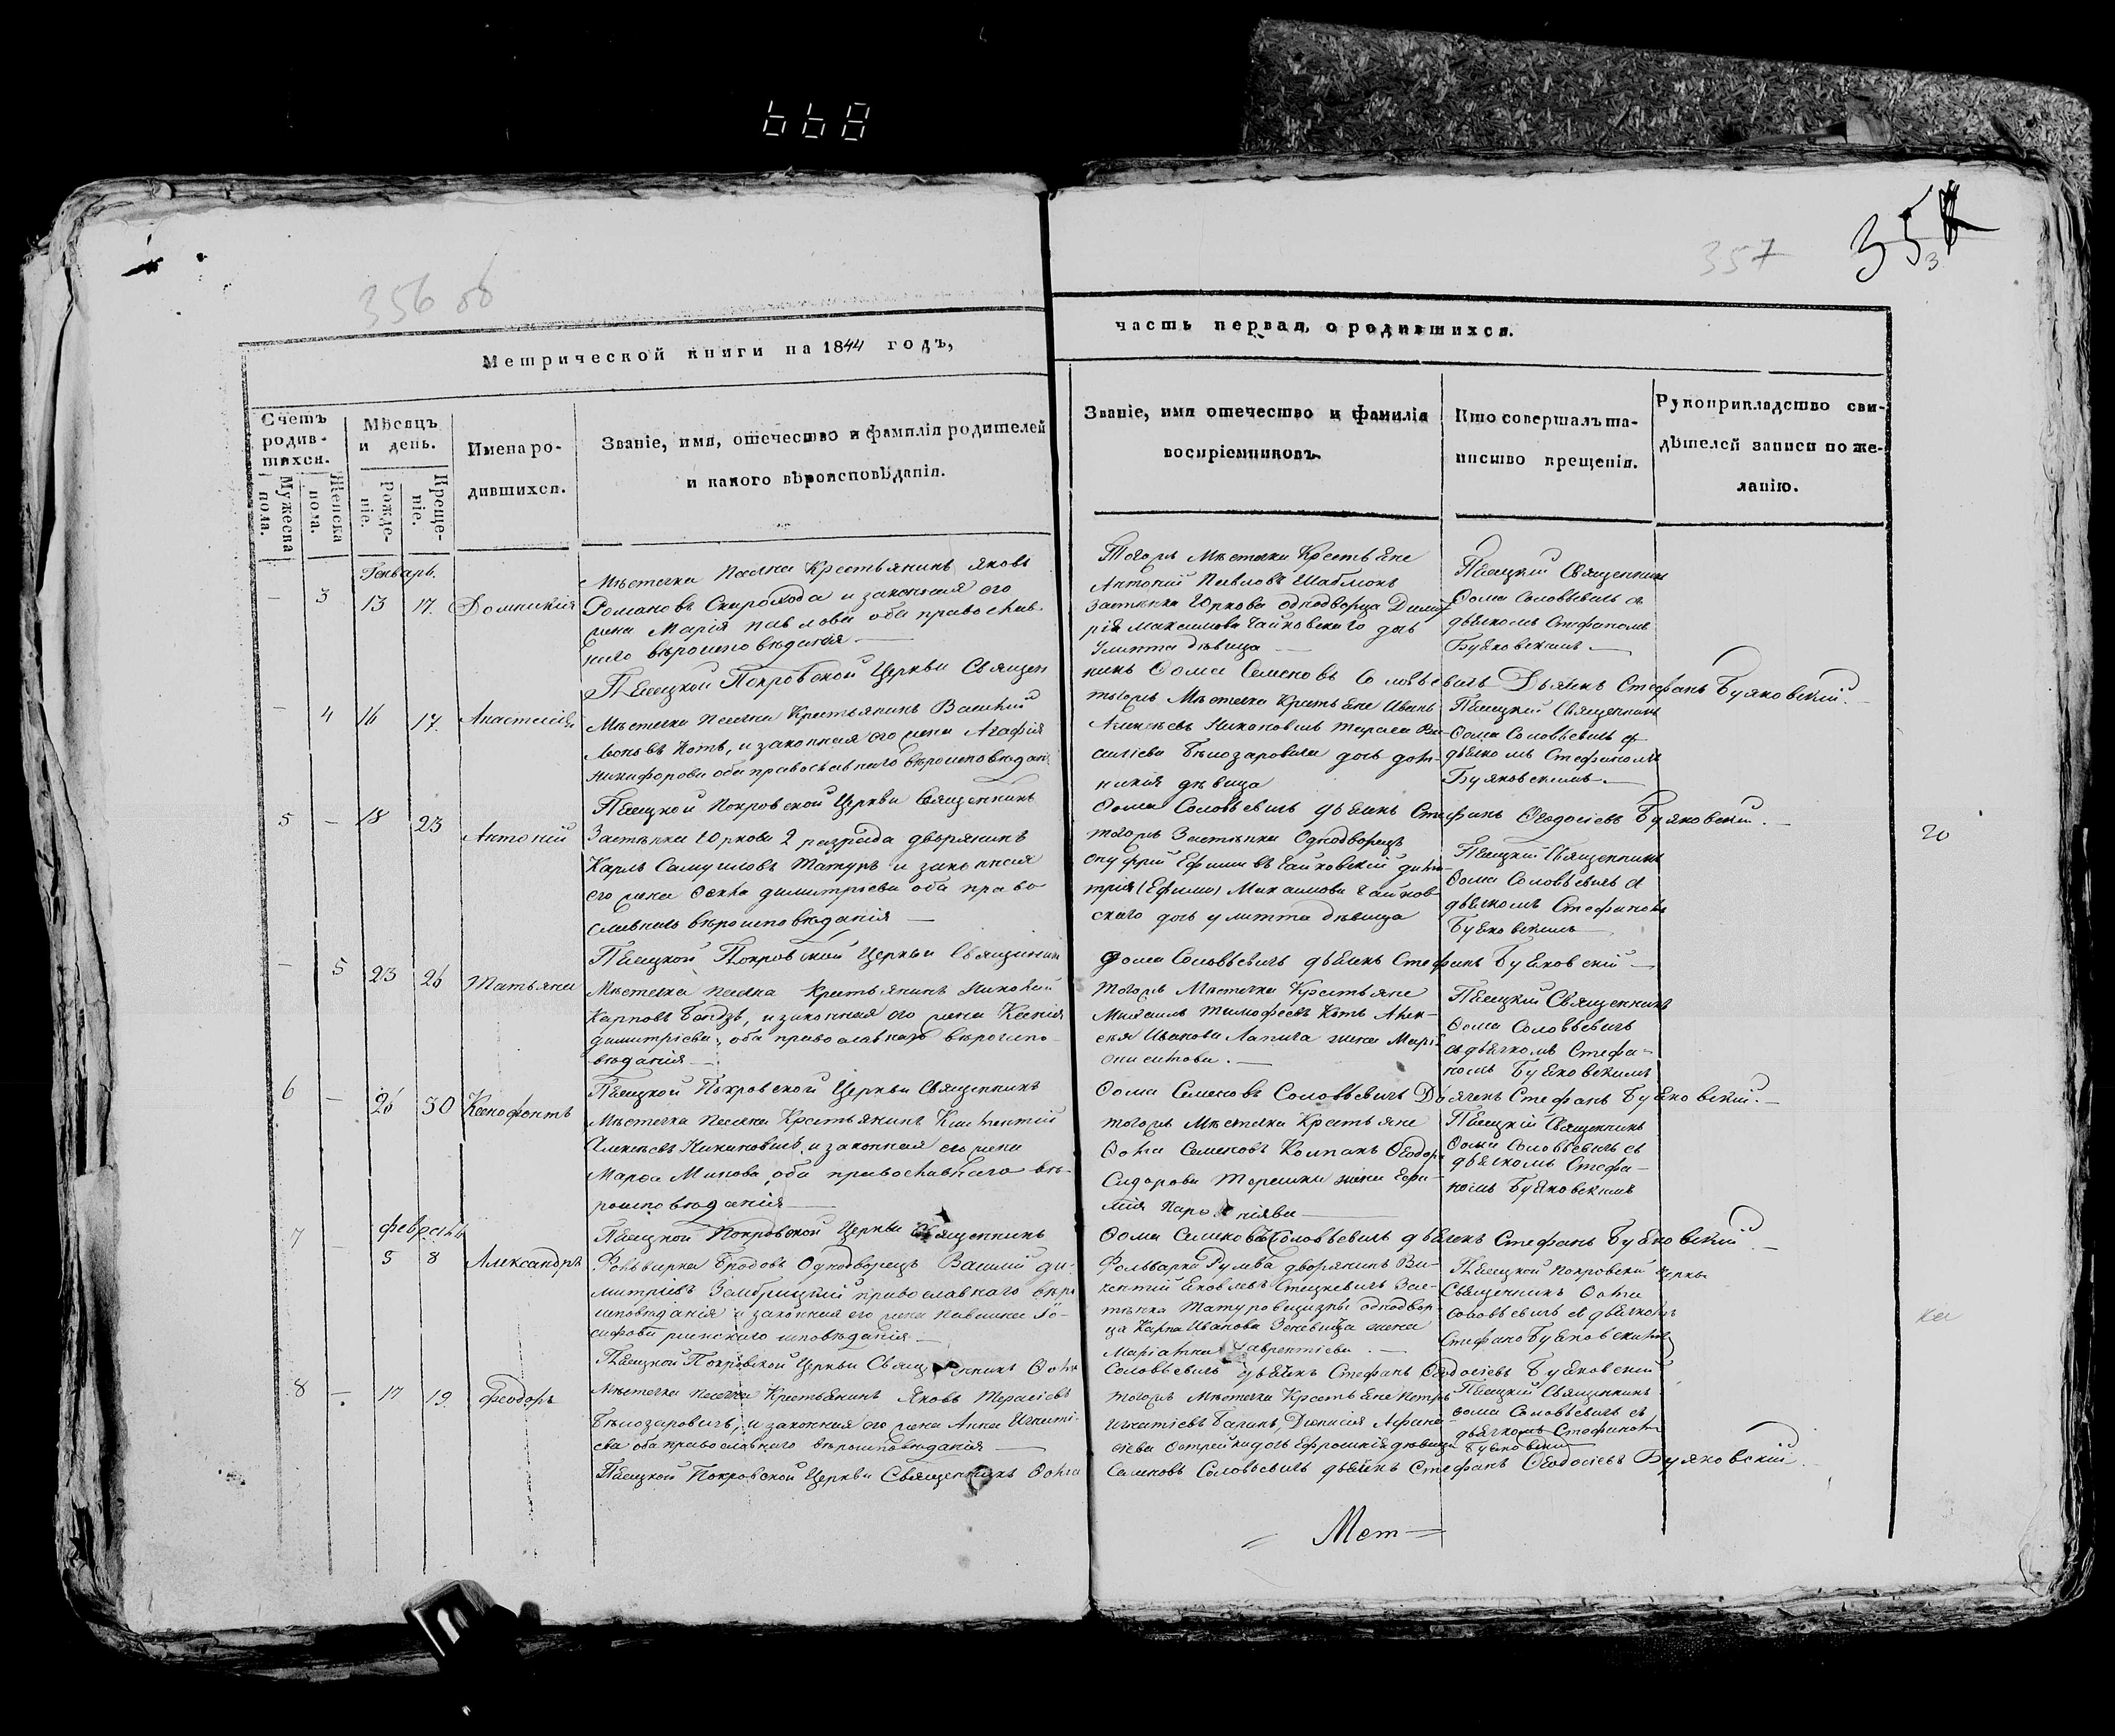 668
356 об
357
35
3
Метрической книги на 1844 годъ,
часть первая, о родившихся.
Счетъ родив-шихся.
Мужеска пола.
Женска пола.
Мѣсяцъ и день.
Рожде-ніе.
Креще-ніе.
Имена ро-
дившихся.
Званіе, имя, отечество и фамилія родителей
и какого вѣроисповѣданія.
Званіе, имя отечество и фамилія
воспріемниковъ.
Кто совершалъ та-
инство крещенія.
Рукоприкладство сви-
дѣтелей записи по же-
ланію.
Генварь.
— 3 13 17. Домникія
Мѣстечка Песчка Крестьянинъ Яковъ
Романовъ Скорохода и законная его
жена Марія Павлова оба православ-
наго вѣроисповѣданія —
Тогожъ Мѣстечка Крестьяне
Антоній Павловъ Шаблюкъ
Застѣнка Юркова однодворца Димит
рія Максимова Чайковскаго дочь
Улитта дѣвица —
Священникъ
Фома Соловьевичъ съ
дьячкомъ Стефаномъ
Буяковскимъ —
Покровской Церкви Священ
никъ Фома Семеновъ Соловьевичъ Дьячекъ Стефанъ Буяковскій. —
— 4 16 17. Анастасія
Мѣстечка Песчка Крестьянинъ Василій
Леоновъ Котъ, и законная его жена Агафія
Никифорова оба православнаго вѣроисповѣдан
тогожъ Мѣстечка Крестьяне Иванъ
Алексѣевъ Никоновичъ Тараса Ва-
силіева Бѣлозаровича дочь дом-
никія дѣвица
Священникъ
Фома Соловьевичъ съ
дьячкомъ Стефаномъ
Буяковскимъ —
Покровской Церкви Священникъ
Фома Соловьевичъ дьячекъ Стефанъ Феодосіевъ Буяковскій. —
5 — 18 23 Антоній
Застѣнка Юркова 2 разряда дворянинъ
Карлъ Самуиловъ Татуръ и законная
его жена Фекла димитріева оба право
славнаго вѣроисповѣданія —
тогожъ Застѣнка Однодворецъ
онуфрій Ефимовъ Чайковскій дими-
трія (Ефима) Максимова Чайков-
скаго дочь улитта дѣвица
Священникъ
Фома Соловьевичъ съ
дьячкомъ Стефаномъ
Буяковскимъ
20
Покровской Церкви Священникъ
Фома Соловьевичъ дьячекъ Стефанъ Буяковскій —
— 5 23 26 Татьяна
Мѣстечка Песчка Крестьянинъ Николай
Карповъ и законная его жена Ксенія
димитріева, оба православнаго вѣроиспо-
вѣданія —
тогожъ Мѣстечка Крестьяне
Михаилъ Тимофеевъ Котъ Алек-
сѣя Иванова Лапича жена Марія
онисимова. —
Священникъ
Фома Соловьевичъ
съ дьячкомъ Стефа-
номъ Буяковскимъ
Покровской Церкви Священникъ
Фома Семеновъ Соловьевичъ Дьячекъ Стефанъ Буяковскій. —
6 — 26 30 Ксенофонтъ
Мѣстечка Песчка Крестьянинъ Климентій
Алексѣевъ Никоновичъ, и законная его жена
Марфа Минова, оба православнаго вѣ-
роисповѣданія —
тогожъ Мѣстечка Крестьяне
Фома Семеновъ Феодора
Сидорова Терешки жена Евфи-
мія
Священникъ
Фома Соловьевичъ съ
дьячкомъ Стефа-
номъ Буяковскимъ
Покровской Церкви Священникъ
Фома Семеновъ Соловьевичъ дьячекъ Стефанъ Буяковскій. —
февраль
7 — 5 8 Александръ
Фольварка Бродовъ Однодворецъ Василій ди-
митріевъ Замбрицкій православнаго вѣро
исповѣданія и законная его жена Павлина Іо-
сифова римскаго исповѣданія —
Фольварка дворянинъ Ви-
кентій Яковлевъ Зас-
тѣнка Татуровщизны однодвор-
ца Карла Иванова жена
Маріанна Лаврентіева. —
Покровской церкви
Священникъ Фома
Соловьевичъ съ дьячкомъ
Стефаномъ Буяковскимъ
Покровской Церкви Священникъ Фома
Соловьевичъ дьячекъ Стефанъ Феодосіевъ Буяковскій
8 — 17 19 Феодоръ
Мѣстечка Песчка Крестьянинъ Яковъ Тарасіевъ
Бѣлозаровичъ, и законная его жена Анна Игнаті-
ева оба православнаго вѣроисповѣданія —
тогожъ Мѣстечка Крестьяне Петръ
Игнатіевъ Діонисія Афана-
сіева Острейки дочь Ефросинія дѣвица
Священникъ
Фома Соловьевичъ съ
дьячкомъ Стефаномъ
Буяковскимъ
Покровской Церкви Священникъ Фома
Семеновъ Соловьевичъ дьячекъ Стефанъ Феодосіевъ Буяковскій.
= Мет =